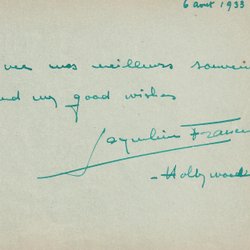 6 aout 1933
avec mes meilleurs souvenirs
and my good wishes
Jacqueline Francell
- Hollywood